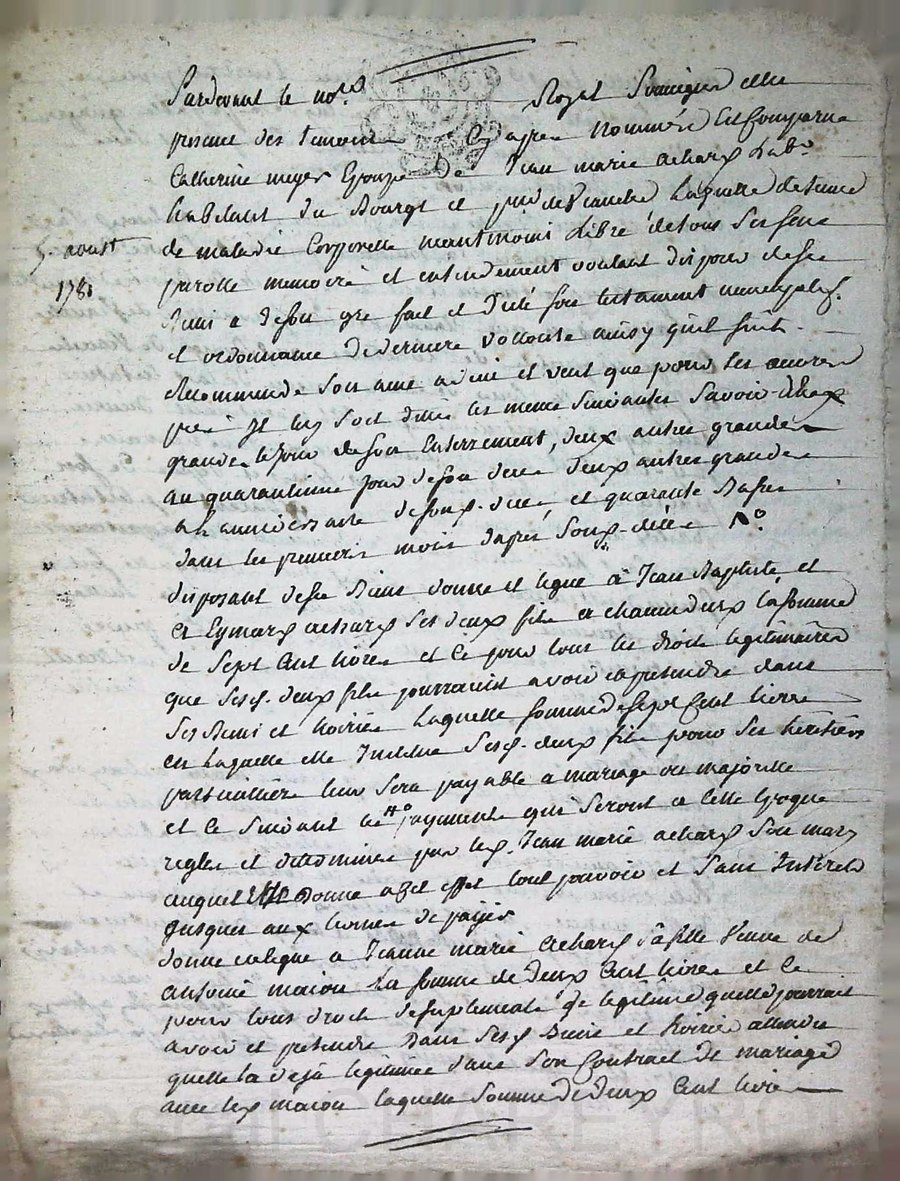 Pardevant le no.re Royal soussigné et en
presence des temoins cy apres nommés est comparue
Catherine meyer Epouse de Jean marie achard Lab.r
habitant du Bourg et p.sse de laquelle detenue
5. aoust
1781
de maladie corporelle neantmoins Libre de tous ses sens
parolle memoire et entendement voulant disposer de ses
Biens a de son gré fait et dicté son testament nuncupatif
et ordonnance de derniere vollonté ainsy qu'il suit
Recommande son ame a dieu et veut que pour ses œuvres
pies Il luy soit dittes les messes suivantes savoir deux
grandes le jour de son Enterrement, deux autres grandes
au quarantieme jour de son deces deux autres grandes
a l'anniversaire de sond. deces, et quarante Basses
dans les premiers mois d'après sond. décès
disposant de ses Biens donne et legue à Jean Baptiste, et
et Eymard achard ses deux fils a chacun d'eux la somme
de sept Cent livres et ce pour tous les droits legitimaires
que sesd. deux fils pourraient avoir et pretendre dans
ses Biens et hoirie laquelle somme de sept Cent livres
en laquelle elle Institue sesd. deux fils pour ses heritiers
particuliers leur sera payable a mariage ou majorité
et ce suivant les payements qui seront a cette Epoque
reglés et determinés par led. Jean marie achard son mary
auquel Elle donne a cet effet tout pouvoir et sans Interets
jusques aux termes de payes
donne et legue a Jeanne marie achard sa fille veuve de
antoine maion la somme de deux Cent livres et ce
pour tous droits de suplement de legitime quelle pourrait
avoir et pretendre dans sesd. Biens et hoirie attendu
quelle la deja legitimée dans son Contract de mariage
avec led. maion laquelle somme de deux Cent livres